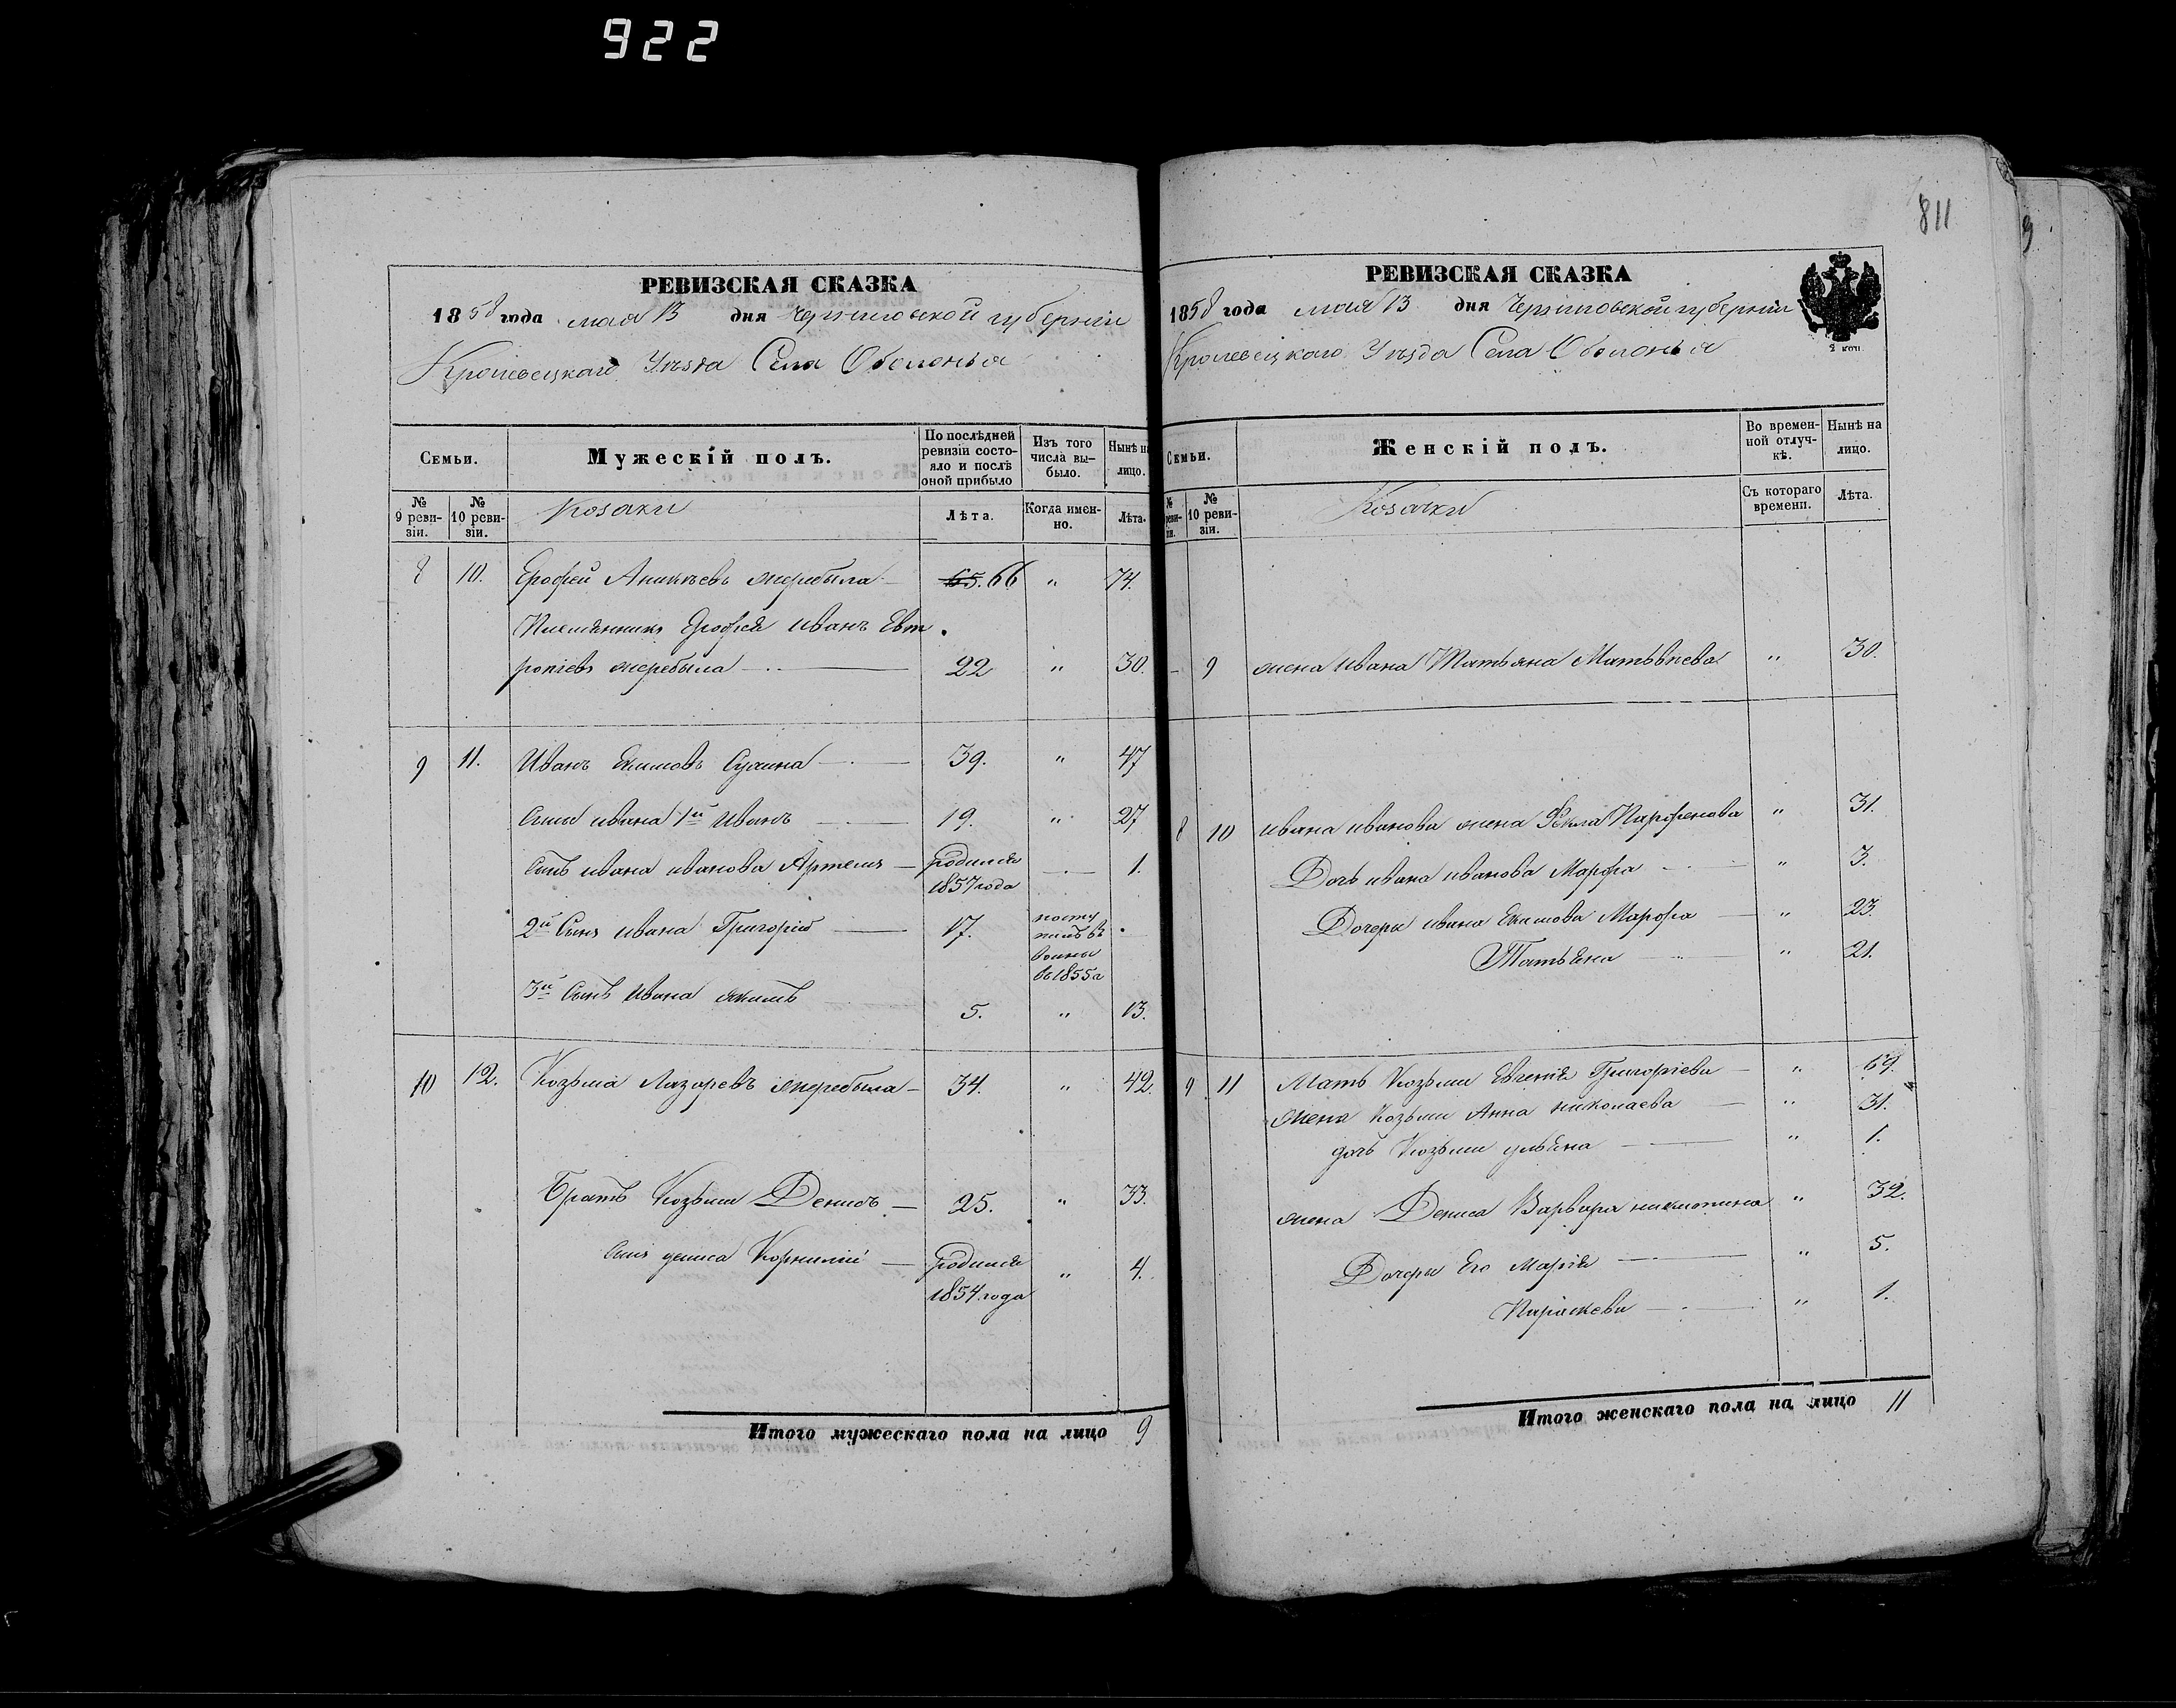 922
811
РЕВИЗСКАЯ СКАЗКА
1858 года мая 13 дня Черниговской губерніи
Кролевецкаго Уѣзда Села Оболонья
Семьи.
Мужескій полъ.
По послѣдней ревизіи состояло и послѣ оной прибыло
Изъ того числа выбыло.
Нынѣ на лицо.
№ 9 ревизіи.
№ 10 ревизіи.
Козаки
Лѣта.
Когда именно.
Лѣта.
8 10. Ерофей Аникѣевъ жеребыла 65. 66 " 74.
Племянникъ Ерофея Иванъ Евт
ропіевъ жеребыла 22 " 30.
9 11. Иванъ Екимовъ 39. " 47
Сынъ ивана 1й Иванъ 19. " 27
Сынъ ивана иванова Артемъ родился 1.
1857 года
2й Сынъ ивана Григорій 17. посту
пилъ въ
воины
въ 1855 г
3й Сынъ Ивана якимъ 5. " 13.
10 12. Козьма Лазаревъ жеребыла 34. " 42.
Братъ Козьмы Денисъ 25. " 33.
Сынъ дениса Корнилій родился " 4.
1854 года
Итого мужескаго пола на лицо 9
РЕВИЗСКАЯ СКАЗКА
1858 года мая 13 дня Черниговской губерніи
2 коп.
Кролевецкаго Уѣзда Села Оболонья
Семьи.
Женскій полъ.
Во временной отлучкѣ.
Нынѣ на лицо.
№ реви-зіи.
№ 10 ревизіи.
Козачки
Съ котораго времени.
Лѣта.
9 жена Ивана Татьяна Матьвѣева " 30.
8 10 ивана иванова жена Фекла Парфенова " 31.
Дочь ивана иванова Марфа " 3.
Дочери ивана Екимова Марфа " 23.
Татьяна " 21.
9 11 Мать Козьмы Евгенія Григоріева " 69.
жена Козьмы Анна николаева " 31.
дочь Козьмы ульяна " 1.
жена Дениса Варвара никитина " 32.
Дочери Его Марія " 5.
Параскева " 1.
Итого женскаго пола на лицо 11